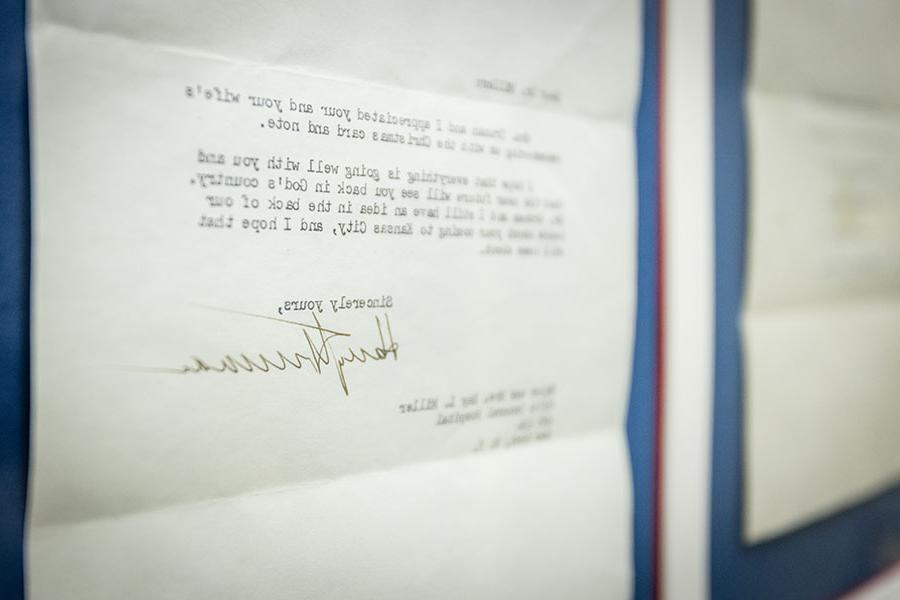 Miller
Mrs. Truman and I appreciated your and your wife's
remembering us with the Christmas card and note.
I hope that everything is going well with you and
that the near future will see you back in God's country.
Mrs. Truman and I still have an idea in the back of our
about your coming to Kansas City, and I hope that
will come about.
Sincerely yours,
Harry Truman
Major and Mrs. Ray L. Miller
General Hospital